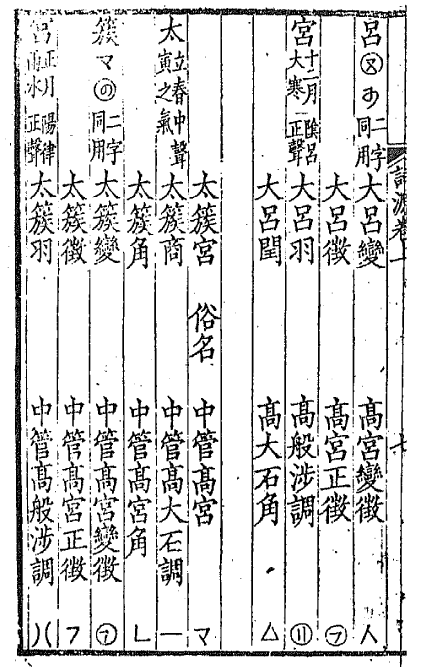 詞源卷上 七
呂 ㊇ の 二字同用 大呂變 高宮變徵 人
大呂徵 高宮正徵 ㋐
宮 十二月大寒 陰呂正聲 大呂羽 高般涉調 ⑪
大呂閏 高大石角 △
太簇宮 俗名 中管高宮 マ
太 立春中聲 寅之氣 太簇商 中管高大石調 一
太簇角 中管高宮角 ㄴ
簇 マ の 二字同用 太簇變 中管高宮變徵 ㋐
太簇徵 中管高宮正徵 フ
宮 正月雨水 陽律正聲 太簇羽 中管高般涉調 )(